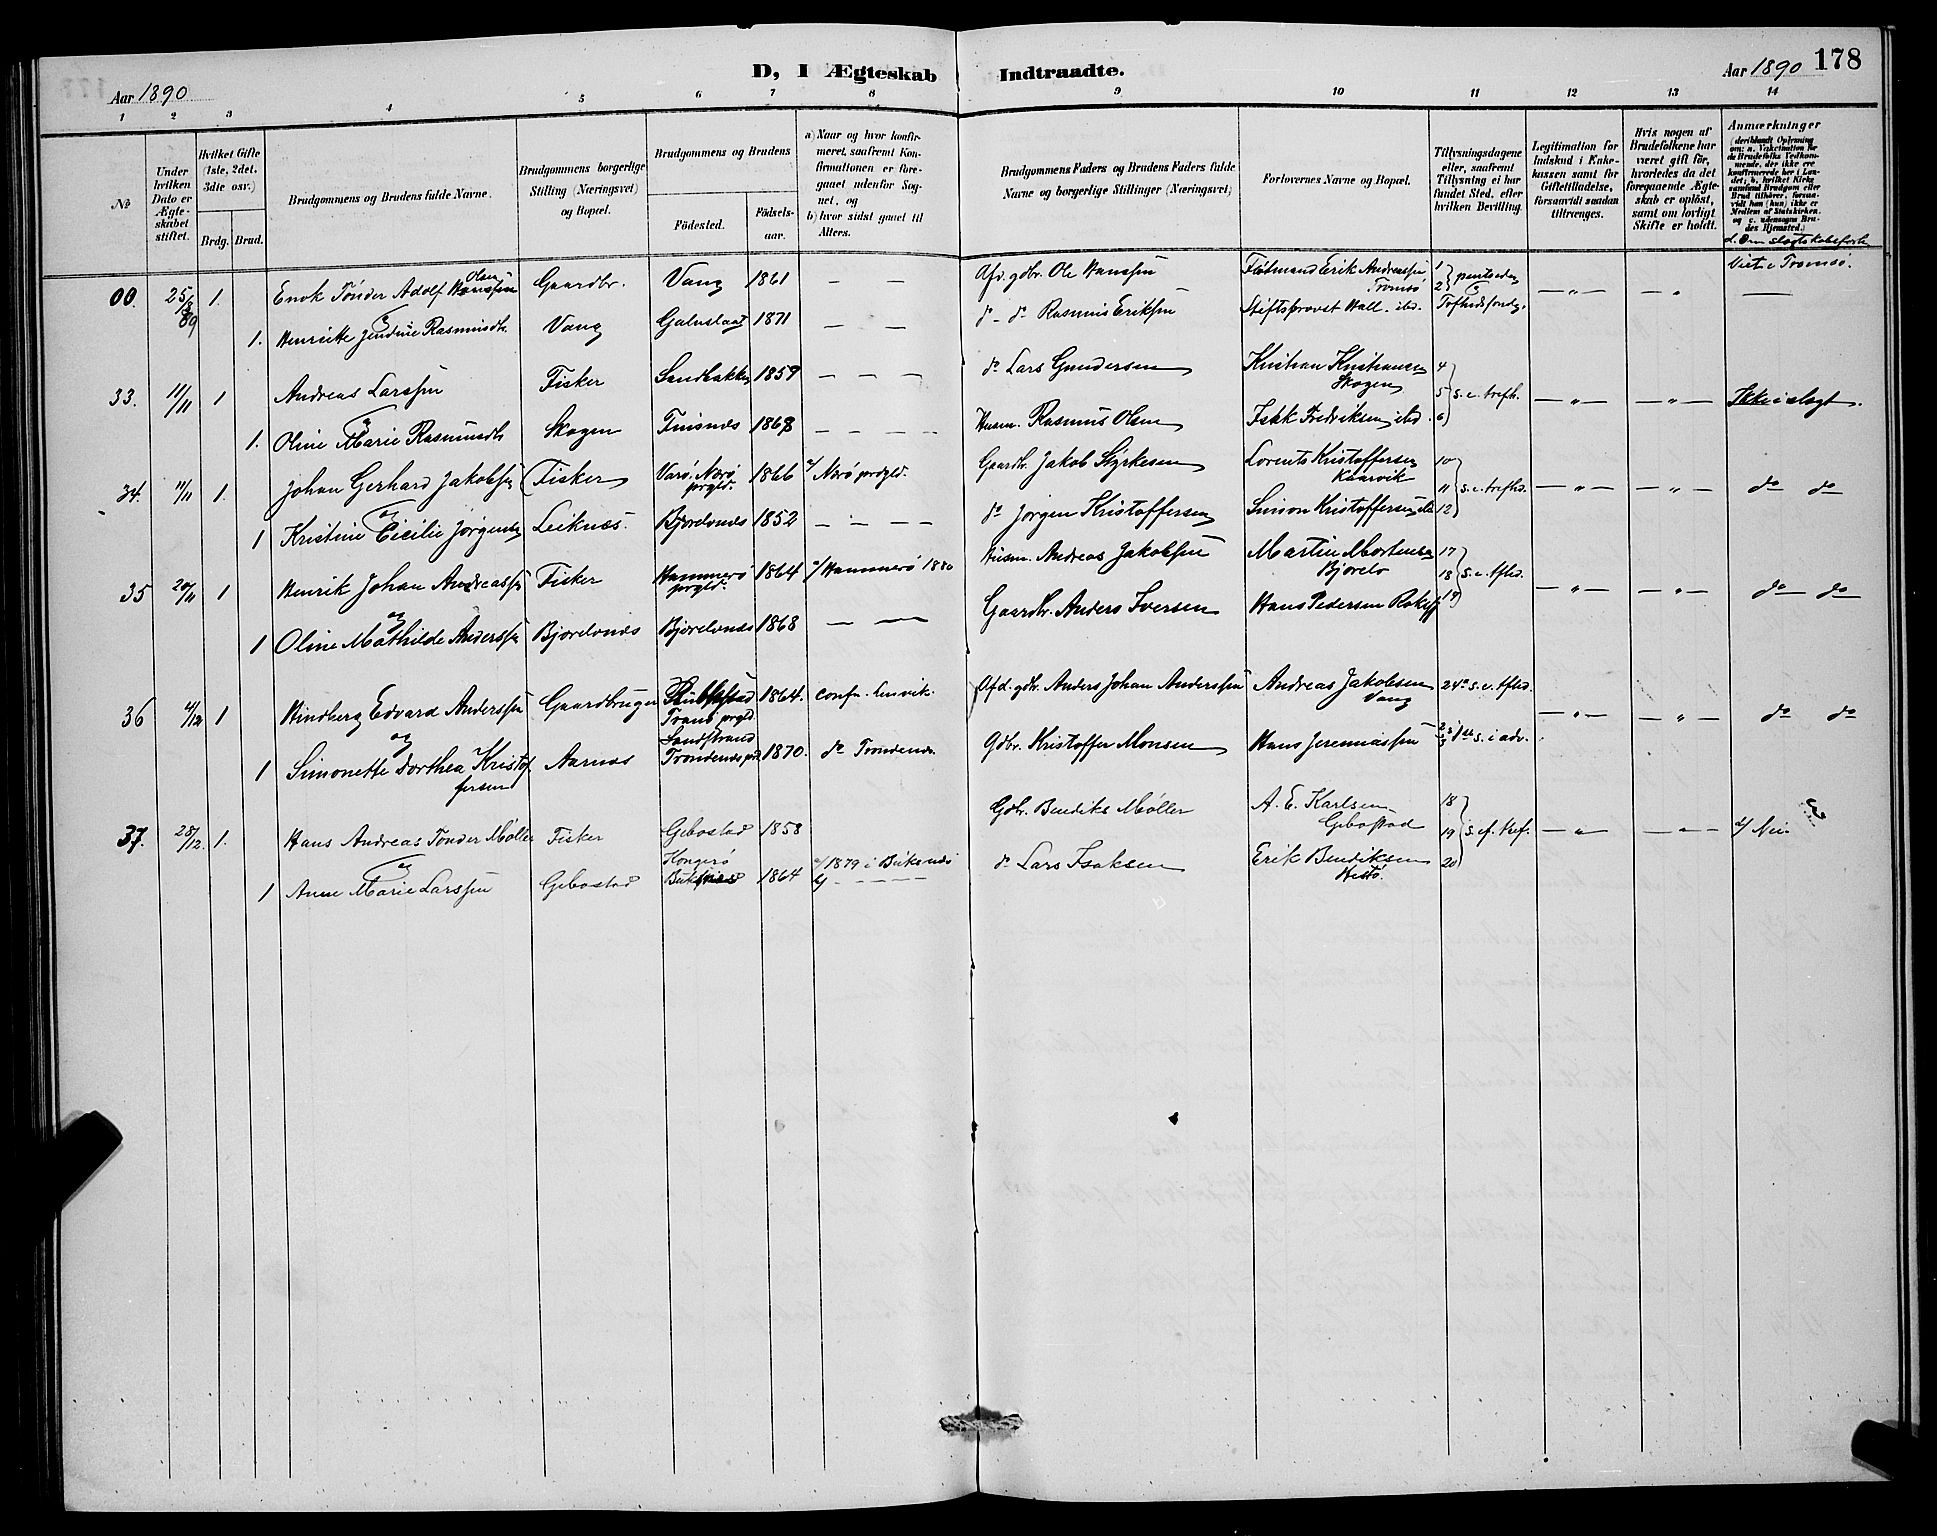 D, I Ægteskab Indtraadte.
178
Aar 1890
Aar 1890
1 2 3 4 5 6 7 8 9 10 11 12 13 14
No
Under hvilken Dato er Ægteskabet stiftet.
Hvilket Gifte (1ste, 2det, 3die osv.)
Brdg. Brud.
Brudgommens og Brudens fulde Navne.
Brudgommens borgerlige Stilling (Næringsvei) og Bopæl.
Brudgommens og Brudens
Födested.
Födselsaar.
a) Naar og hvor konfirmeret, saafremt Konfirmationen er foregaaet udenfor Sognet, og
b) hvor sidst gaaet til Alters.
Brudgommens Faders og Brudens Faders fulde Navne og borgerlige Stillinger (Næringsvei)
Forlovernes Navne og Bopæl.
Tillysningsdagene eller, saafremt Tillysning ei har fundet Sted, efter hvilken Bevilling.
Legitimation for Indskud i Enkekassen samt for Giftetilladelse, forsaavidt saadan tiltrænges.
Hvis nogen af Brudefolkene har været gift för, hvorledes da det foregaaende Ægteskab er oplöst, samt om lovligt Skifte er holdt.
Anmærkninger
00. 25/8 89 1. Enok Tønder Adolf Hanssen Olsen Gaardbr. Vang 1861 — — Afd. gdbr. Ole Hanssen Erik Andreassen Tromsö 1 2 — " — — " Viet i Tromsö.
og
1. Henrikke Rasmusdtr. Vang 1871 — — do do Rasmus Eriksen Stiftsprovst Hall. ibd. —
33. 11/11 1 Andreas Larssen Fisker Sandbakken 1859 — — — do Lars Gundersen Kristian Kristiansen Skogen 4 5 6 — " — — " — Ikke i slegt.
og
1. Oline Marie Rasmusdtr Skogen Finsnes 1868 — — — Husm. Rasmus Olsen Isak Fredriksen ibd.
34. 11/11 1. Johan Gerhard Jakobsen Fisker Nærö prgld. 1866 a/ Nærö prdgld. Gaardbr. Jakob Styrkesen Lorents Kristoffersen Kaarvik 10 11 12 — " — — " — do do
og
1 Kristine Cecilie Jørgensen Leiknes. Bjorelvnes 1852 — — — do Jørgen Kristoffersen Simon Kristoffersen
35 20/11 1 Henrik Johan Andreassen Fisker Hammerö prgld. 1864 a/ Hammerö 1880 Husm. Andreas Jakobsen Martin Mortensen Bjorelv 17 18 19 — " — — " — do do
og
1 Oline Mathilde Anderssen Bjorelvnes Bjorelvnes 1868 — — Gaardbr. Anders Iversen Hans Pedersen
36 4/12 1 Hindberg Edvard Anderssen Gaardbruger Tranö prgld 1864. conf. Lenvik. Afd. gdbr. Anders Johan Anderssen Andreas Jakobsen Vang — " — — " — do do
og
1 Simonette Dorthea Kristoffersen Aarnes Sandstrand Trondenes 1870. do Trondenes Gdbr. Kristoffer Monsen Hans Jeremiassen 1ste s. i adv.
37. 28/12 1. Hans Andreas Tønder Møller Fisker Gebostad 1858 Gdbr. Bendiks Møller A. E. Karlsen Gebostad 18 19 20 — " — — " — a/ Nei
og
1 Anne Marie Larssen Gebostad Kongsö Buksnes 1864 a/ 1879 i Buksnes b/ — — — do Lars Isaksen Erik Bendiksen Hestö.